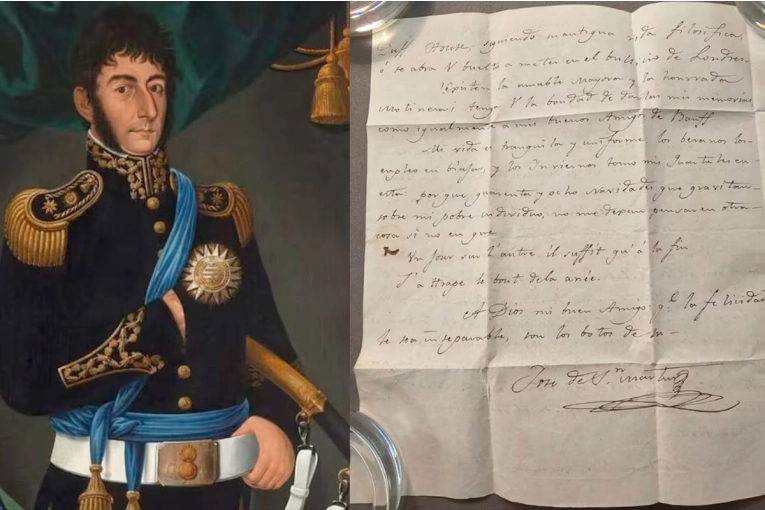 Duff House, siguiendo mantigua vida filosifica,
ó se abra V buelto a meter en el bulicio de Londres
Existen la amable Mayora y la honrrada
Molinera; tenga V la bondad de darlas mis memorias
como igualmente a mis buenos Amigos de Banff
Mi vida es tranquila y uniforme: los beranos los
empleo en biajar, y los Inviernos tomo mis Quarteles en
esta por que quarenta y ocho navidades que gravitan
sobre mi pobre individuo, no me dexan pensar en otra
cosa si no en que
Un Jour sur l'autre il suffit qu'à la fin
J'attrape le bout de la anée.
A Dios mi buen Amigo: q.e la felicidad
le sea inseparable, son los botos de su
Jose de S.n Martin